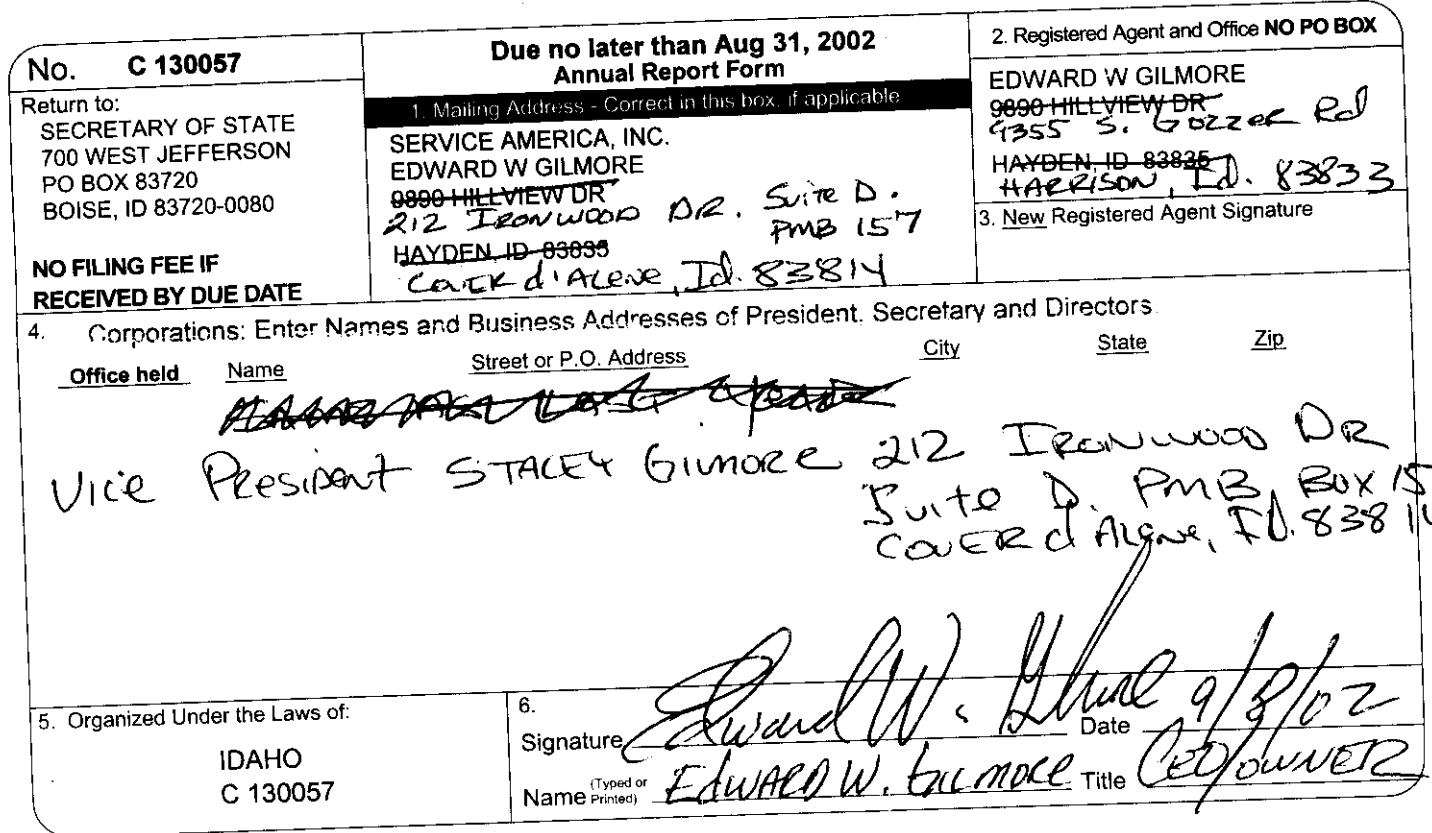 No. C 130057
Return to:
SECRETARY OF STATE
700 WEST JEFFERSON
PO BOX 83720
BOISE, ID 83720-0080
NO FILING FEE IF
RECEIVED BY DUE DATE
Due no later than Aug 31, 2002
Annual Report Form
1. Mailing Address - Correct in this box, if applicable
SERVICE AMERICA, INC.
EDWARD W GILMORE
9890 HILLVIEW DR
212 IRONWOOD DR. Suite D.
PMB 157
HAYDEN, ID 83835
COUER d'ALENE, Id. 83814
2. Registered Agent and Office NO PO BOX
EDWARD W GILMORE
9890 HILLVIEW DR
9355 S. GOZZER Rd
HAYDEN, ID 83835
HARRISON, Id. 83833
3. New Registered Agent Signature
4. Corporations: Enter Names and Business Addresses of President, Secretary and Directors.
Office held Name Street or P.O. Address City State Zip
Vice President STACEY Gilmore 212 IRONWOOD DR
Suite D. PMB, BOX 15
COUER d Alene, Id. 83814
5. Organized Under the Laws of:
IDAHO
C 130057
6.
Signature Edward W. Gilmore Date 9/3/02
Name (Typed or Printed) EdWARD W. GILMORE Title CEO/OWNER